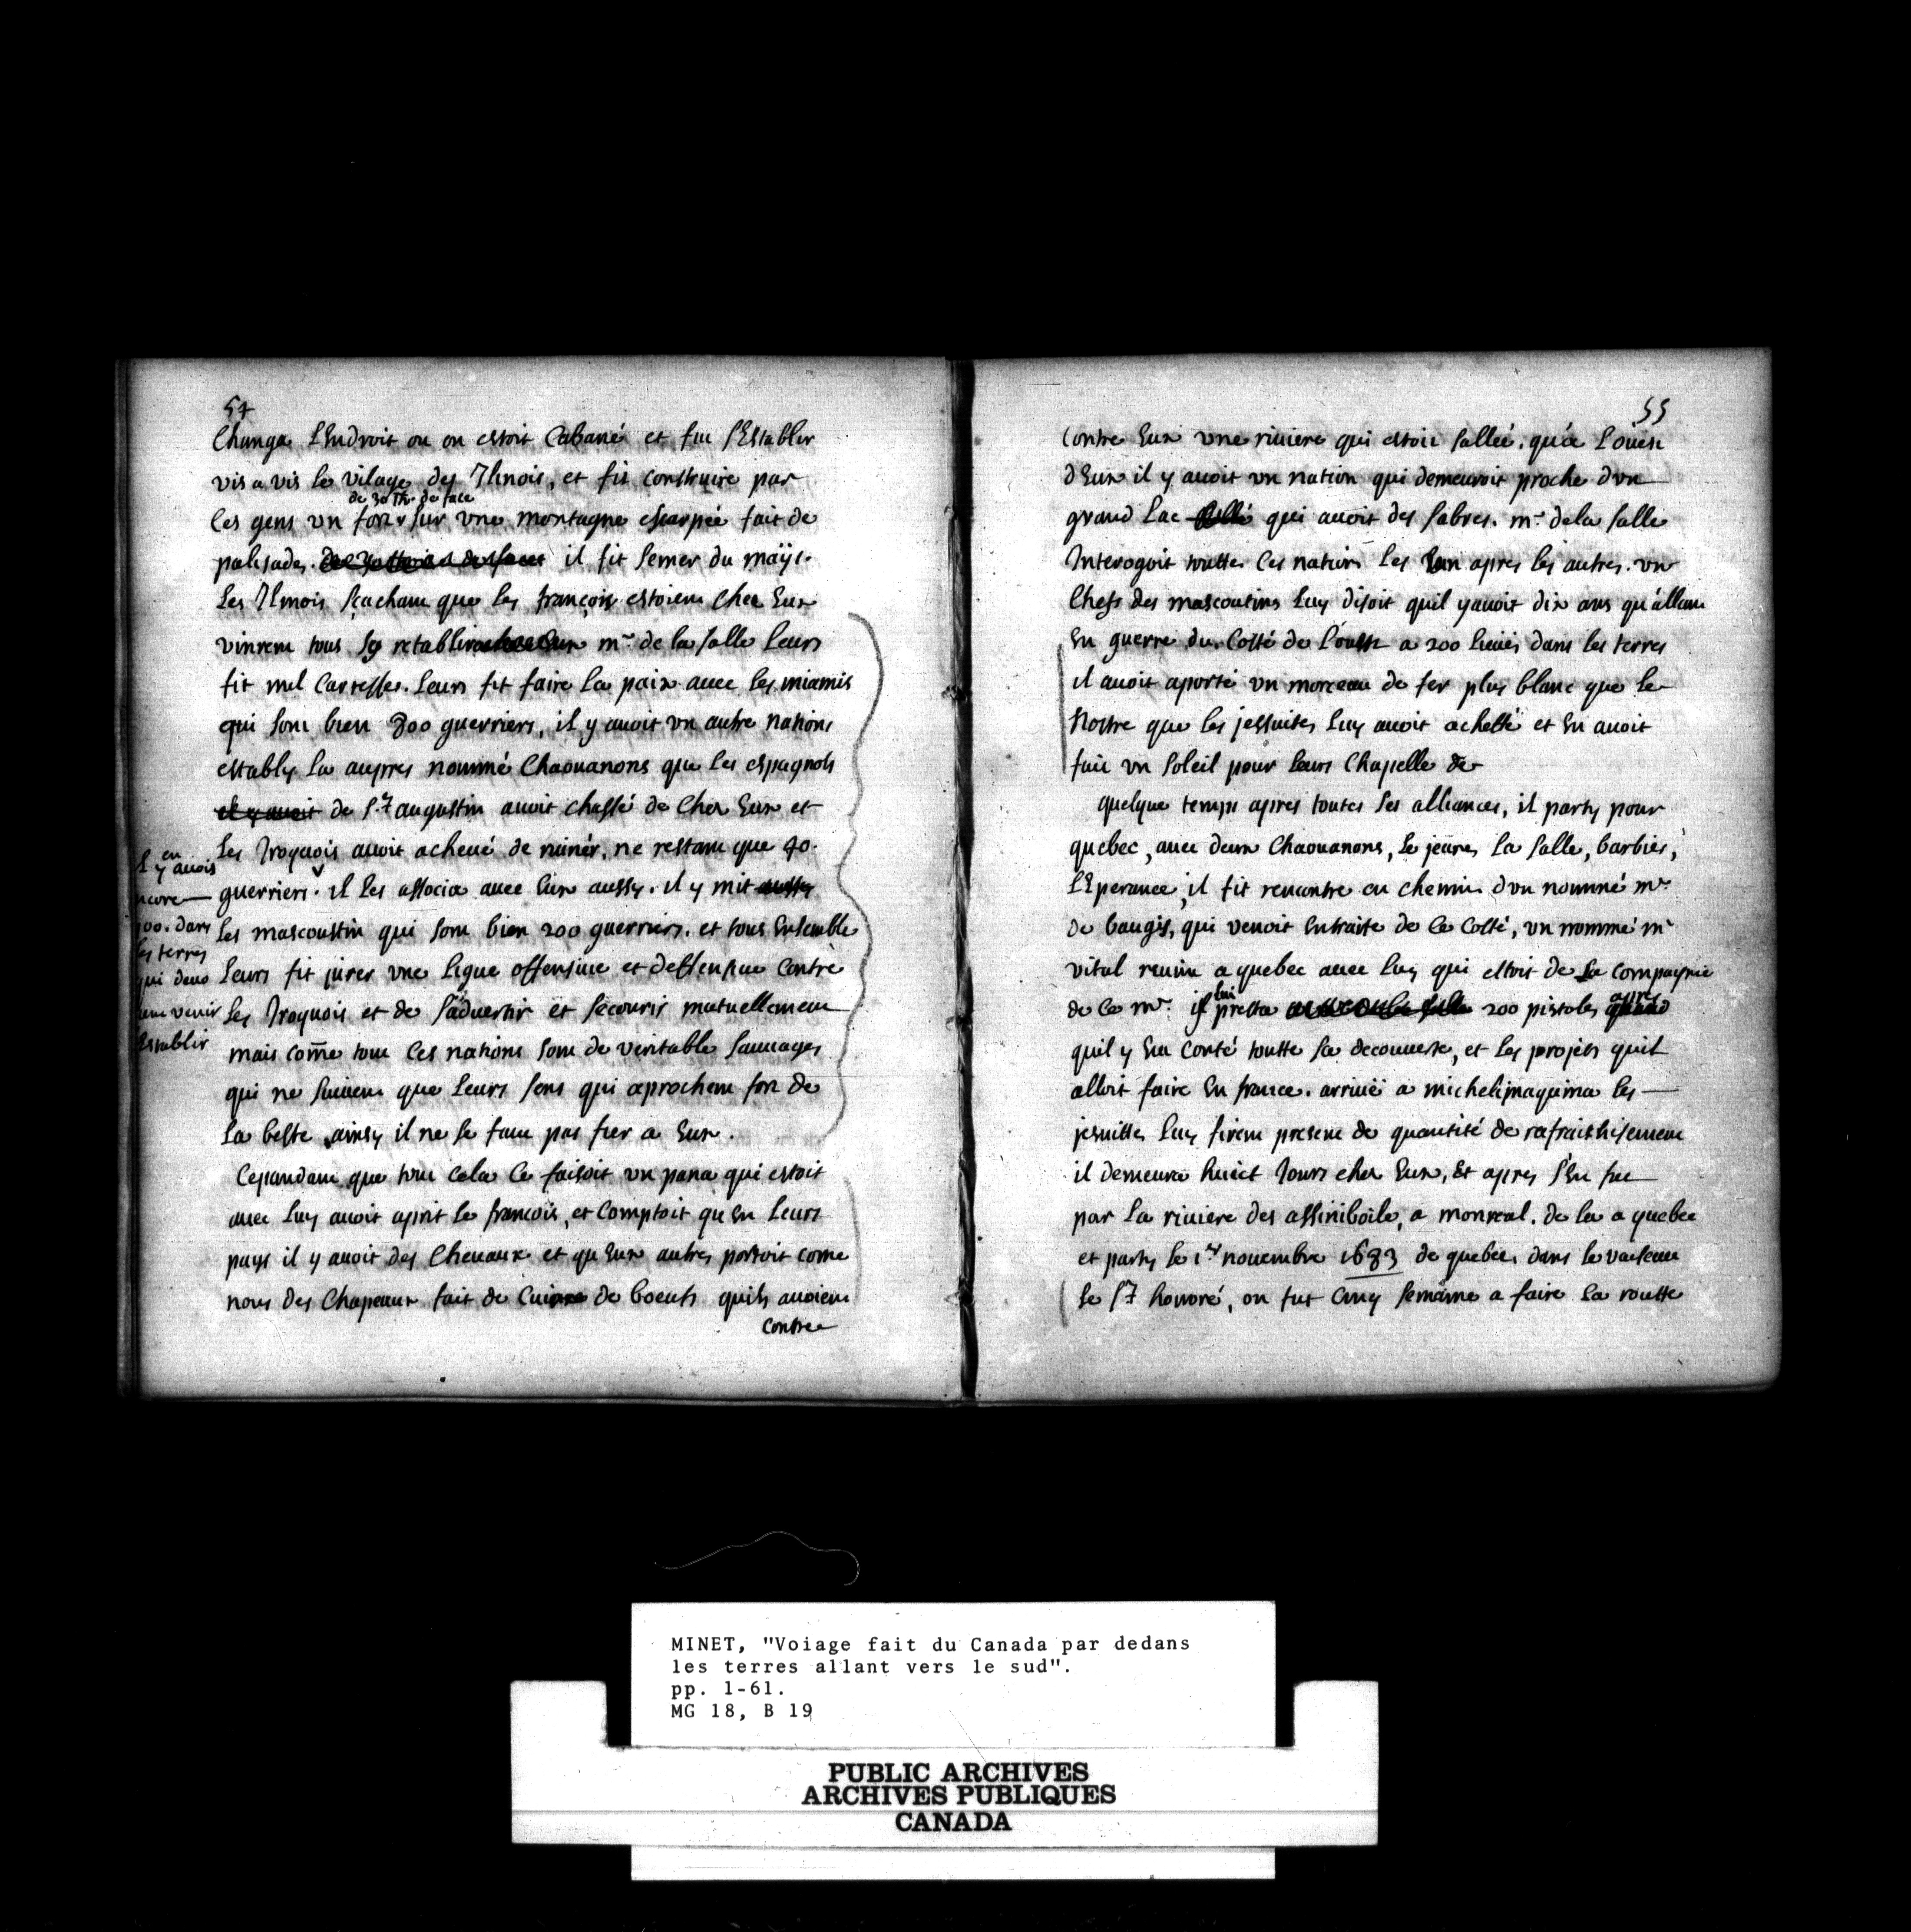 54
Changa l'Endroit ou on estoit Cabané et fut s'Establir
vis a vis le vilage des Ilinois, et fit construire par
de 30 Th. de face
ces gens un fort sur une montagne escarpée fait de
palisades. il fit semer du maÿs.
Les Ilinois sçachant que les françois estoient chez Eux
vinrent tous se retablir mr. de la salle leurs
fit mil caresses. leurs fit faire la paix avec les miamis
qui sont bien 800 guerriers, il y auoit vn autre nations
establys la aupres nommé Chaouanons que les espagnols
el y auoit de St. augustin auoit chassé de chez Eux et
les Iroquois auoit acheué de ruiner, ne restant que 40.
guerriers. il les associa auec Eux aussy. il y mit aussy
les mascoustin qui sont bien 200 guerriers. et tous Ensemble
leurs fit jurer vne ligue offensiue et deffensiue contre
les Iroquois et de s'aduertir et secourir mutuellement
mais come tout ces nations sont de veritable sauuages
qui ne suiuent que leurs sens qui aprochent fort de
la beste ainsy il ne se faut pas fier a Eux.
Cependant que tout cela ce faisoit vn pana qui estoit
auec luy auoit aprit le francois, et comptoit qu'En leurs
pays il y auoit des Cheuaux et qu'Eux autres portoit come
nous des Chapeaux fait de Cuir de boeufs quils auoient
contre
il y en auois
encore
100. dans
les terres
qui deuo
venir
establir
55
contre Eux vne riuiere qui estoit sallée. qu'a l'oüest
d'Eux il y auoit vn nation qui demeuroit proche d'vn
grand Lac sallé qui auoit des sabres. mr. de la salle
Interogoit toutte ces nations les vn apres les autres. vn
Chefs des mascoutins luy disoit quil y auoit dix ans qu'allant
En guerre du Costé de l'ouest a 200 lieües dans les terres
il auoit aporté vn morceau de fer plus blanc que le
nostre que les jessuites luy auoit achetté et En auoit
fait vn soleil pour leurs Chapelle de
quelque temps apres toutes ses alliances, il party pour
quebec, auec deux Chaouanons, le jeunes la salle, barbier,
l'Esperance, il fit rencontre en chemin d'vn nommé mr.
de baugis, qui venoit Entraite de ce Costé, vn nommé mr
vital reuint a quebec auec luy qui estoit de la compagnie
de ce mr. il luy presta 200 pistoles apres
quil y Eut conté toutte sa decouuerte, et les projets quil
alloit faire En france. arriué a michelimaquina les
jesuittes luy firent present de quantité de rafraichisement
il demeura huict Jours chez Eux, Et apres s'En fut
par la riuiere des assiniboile, a monreal. de la a quebec
et party le 1er nouembre 1683 de quebec dans le vaiseau
le St honoré, on fut cinq semaine a faire la routte
MINET, "Voiage fait du Canada par dedans
les terres allant vers le sud".
pp. 1-61.
MG 18, B 19
PUBLIC ARCHIVES
ARCHIVES PUBLIQUES
CANADA